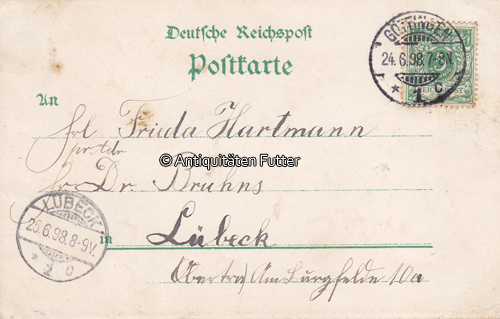 Deutsche Reichspost
Postkarte
GÖTTINGEN
24.6.98.7-8N.
* 1 c
REICHSPOST
An
Frl. Frieda Hartmann
© Antiquitäten Futter
Dr. Bruhns
LÜBECK
25.6.98.8-9V.
* 1 c
in Lübeck
Am Burgfelde 10a